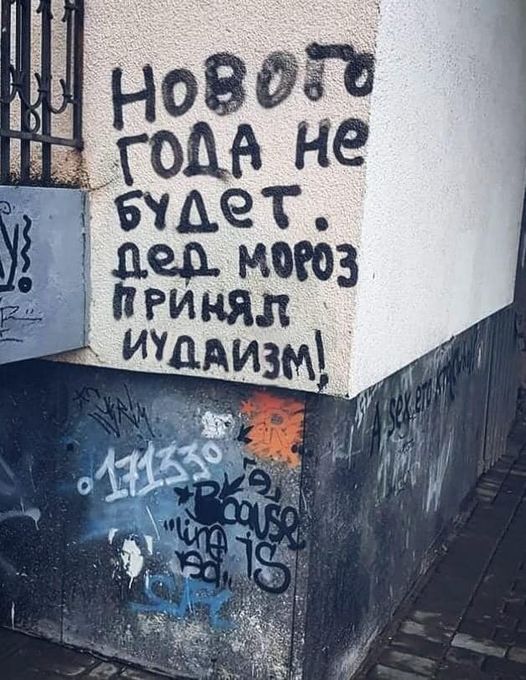 НОВОГО
ГОДА НЕ
БУДЕТ.
ДЕД МОРОЗ
ПРИНЯЛ
ИУДАИЗМ!
171330
Because
IS
А sex его